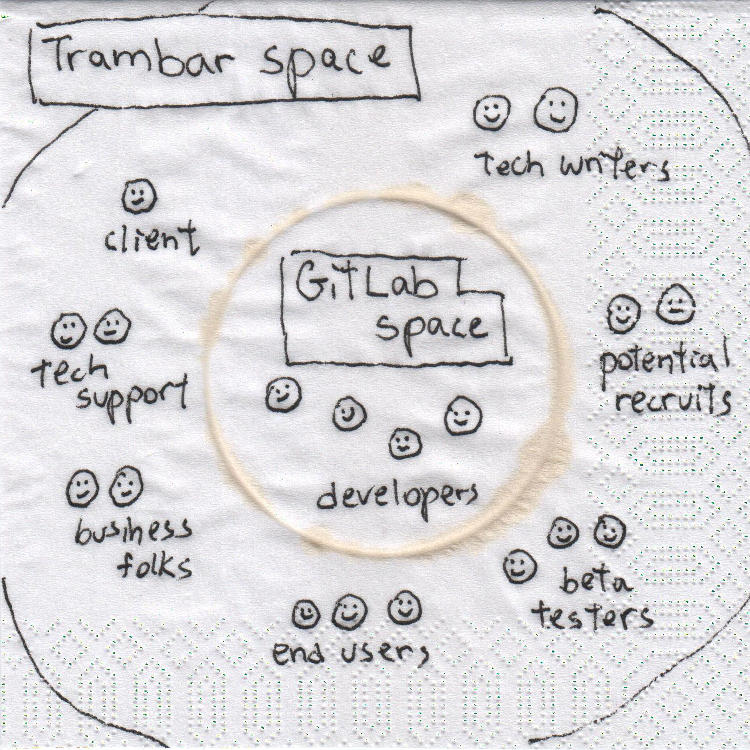 Trambar space
tech writers
client
GitLab
space
potential
recruits
tech
support
developers
business
folks
beta
testers
end users